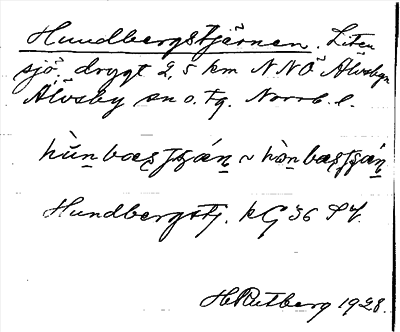 Hundbergstjärnen. Liten
sjö, drygt 2,5 km NNÖ Älvsbyn
Älvsby sn o. tg. Norrb. l.
Hundbergstj. kG 36
HRutberg 1928.